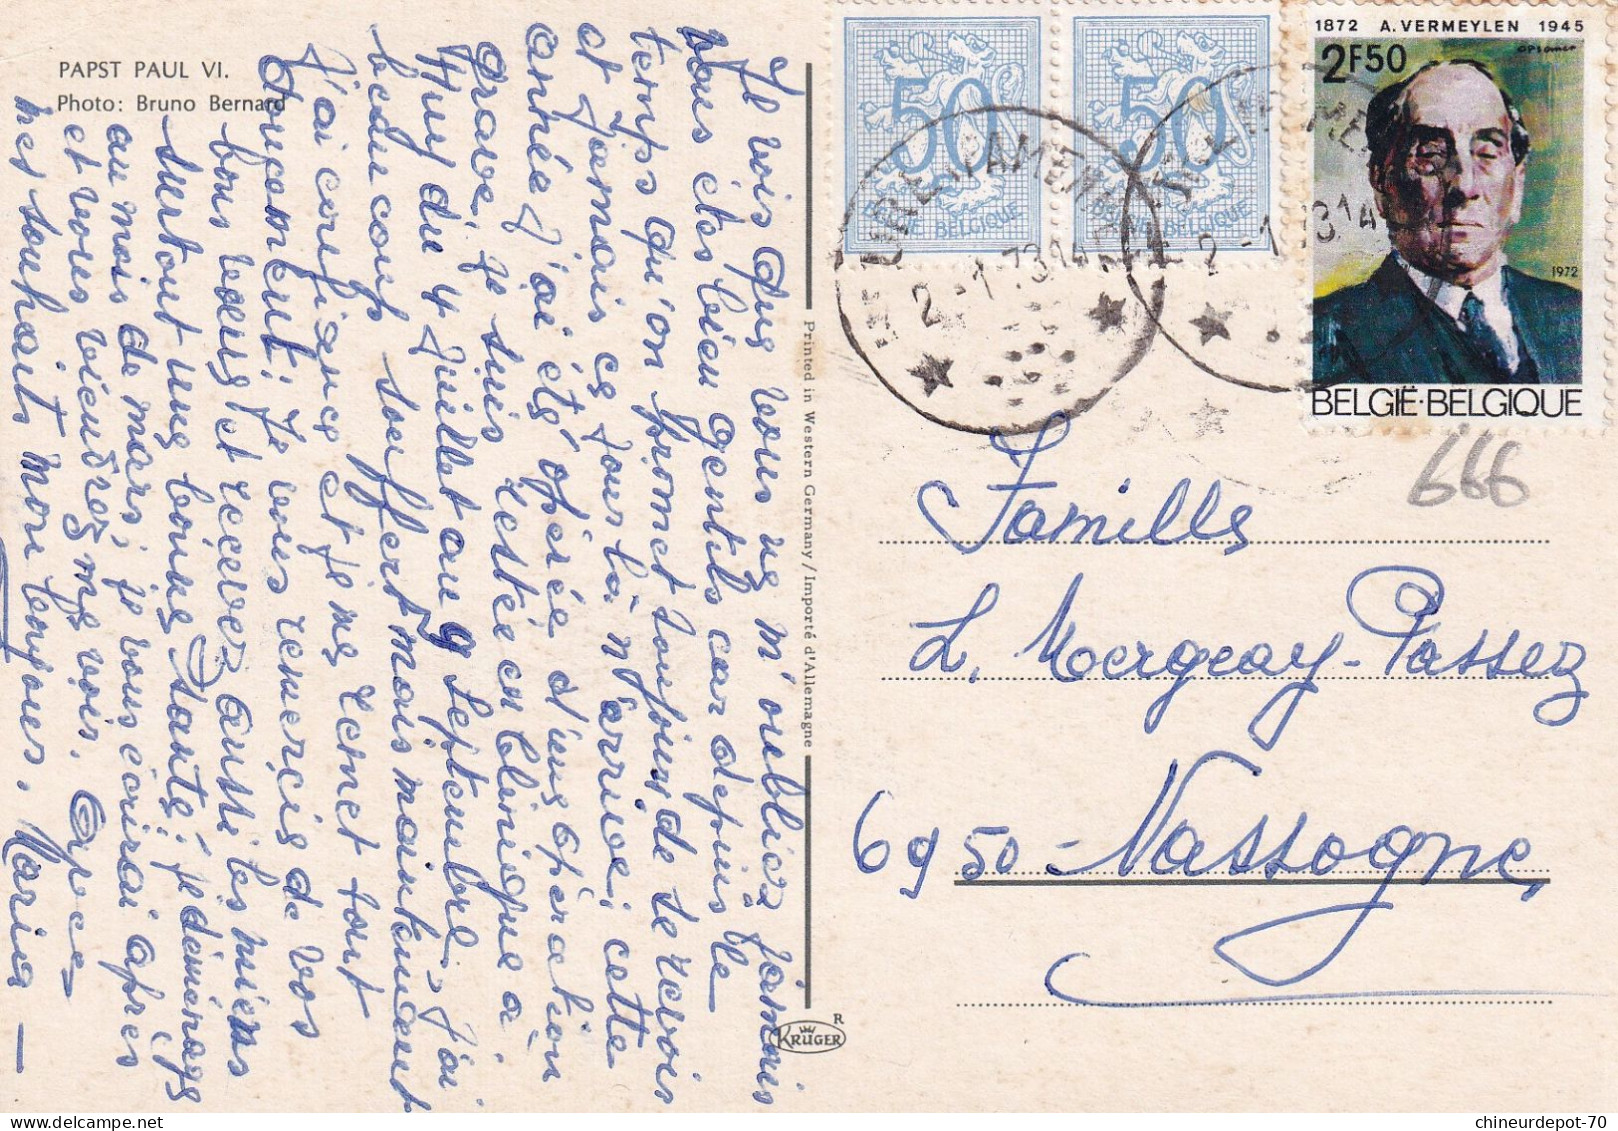 PAPST PAUL VI.
Photo: Bruno Bernard
Je vois que vous ne m'oubliez jamais
vous êtes bien gentils car depuis le
temps qu'on promet toujours de se revoir
et jamais ce jour là n'arrive; cette
année j'ai été opérée d'une opération
grave, je suis restée en clinique à
Huy du 4 Juillet au 9 Septembre. J'ai
beaucoup souffert mais maintenant
J'ai confiance et je me remet tout
doucement; Je vous remercie de vos
bons voeux et recevez aussi les miens
surtout une bonne Santé; je déménage
au mois de mars; je vous écrirai après
et vous viendrez me voir. Avec
mes souhaits mon bonjour. Maria —
Printed in Western Germany / Importé d'Allemagne
KRÜGER
R
50
BELGIE BELGIQUE
50
BELGIE BELGIQUE
1872 A. VERMEYLEN 1945
2F50
OPSOMER
1972
BELGIË·BELGIQUE
2-1-73 14
2-1-73 14
666
Famille
L. Mergeay-Passez
6950-Nassogne
chineurdepot-70